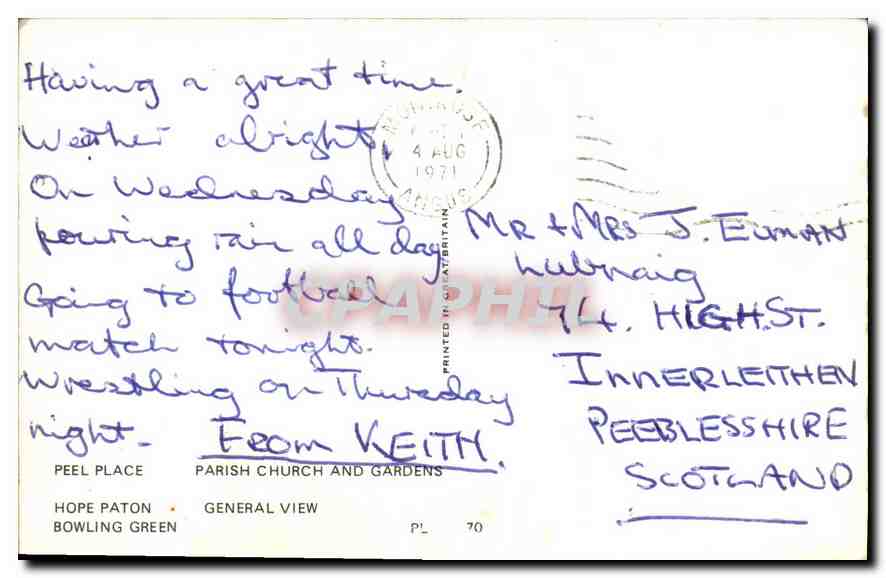 Having a great time.
Weather alright.
On Wednesday
pouring rain all day
Going to football
match tonight.
Wrestling on Thursday
night.
From KEITH.
MONTROSE
4 AUG
1971
ANGUS
PRINTED IN GREAT BRITAIN
MR + MRS J.
Lubnaig
74. HIGH ST.
INNERLEITHEN
PEEBLESSHIRE
SCOTLAND
CPAPHIL
PEEL PLACE PARISH CHURCH AND GARDENS
HOPE PATON GENERAL VIEW
BOWLING GREEN PL 70